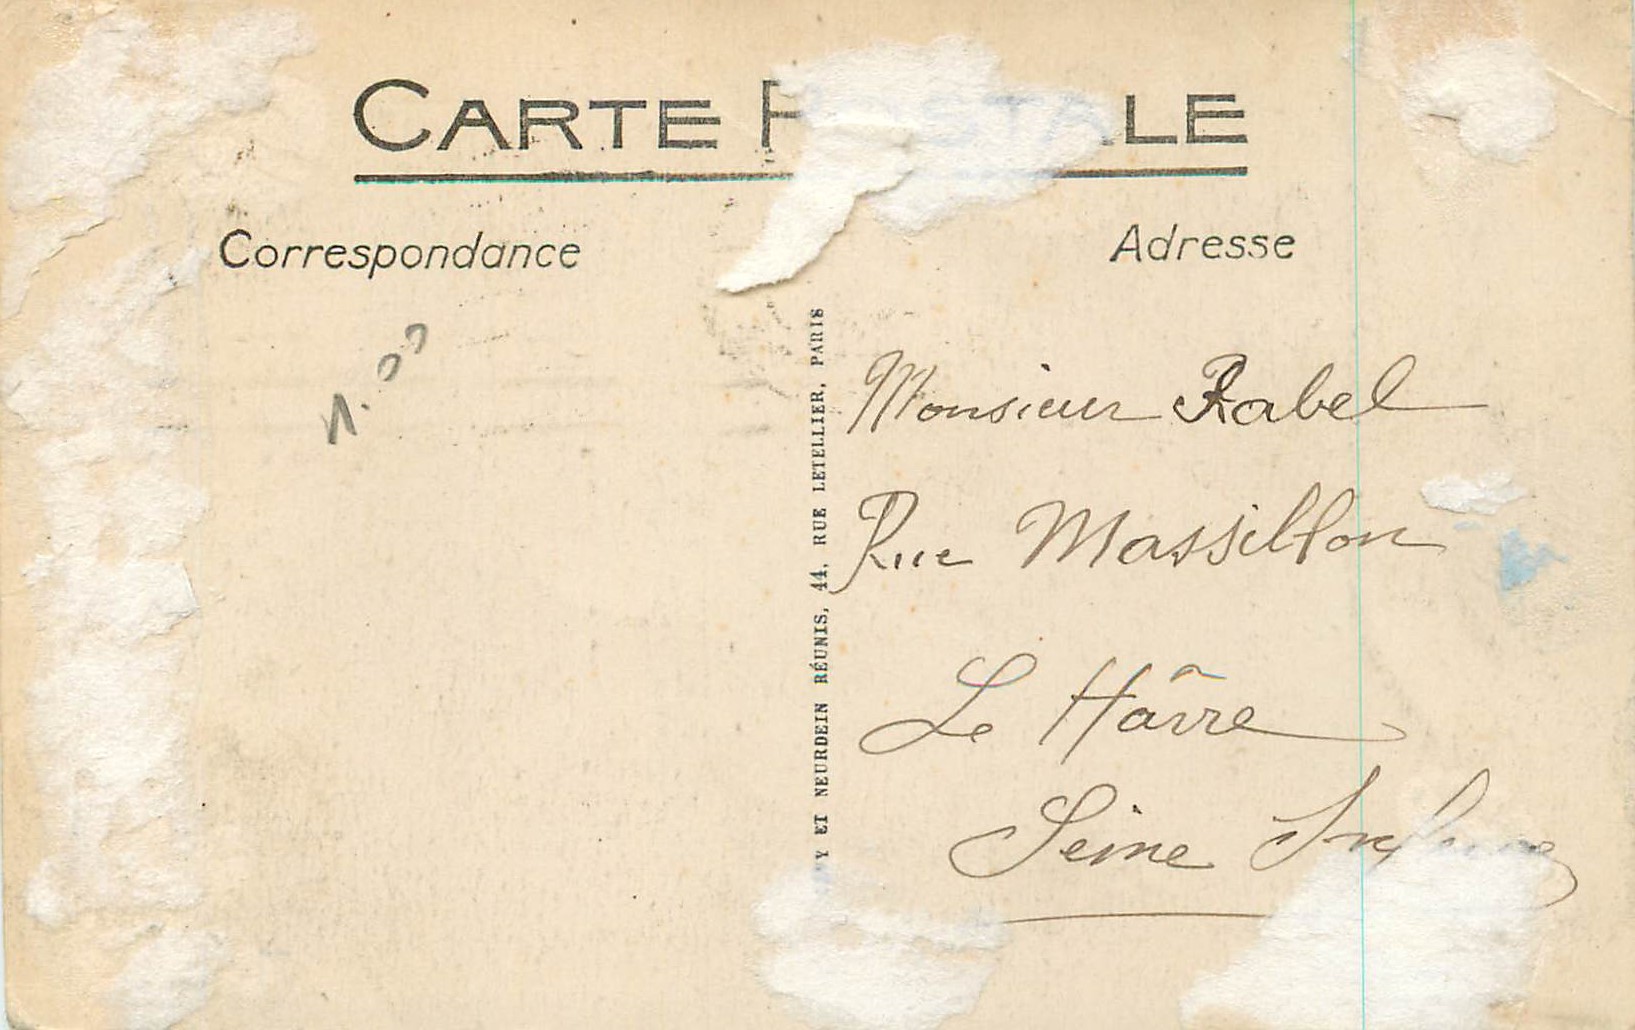 CARTE POSTALE
Correspondance
Adresse
ET NEURDEIN RÉUNIS, 44, RUE LETELLIER, PARIS
Monsieur Rabel
Rue Massillon
Le Hâvre
Seine Infre